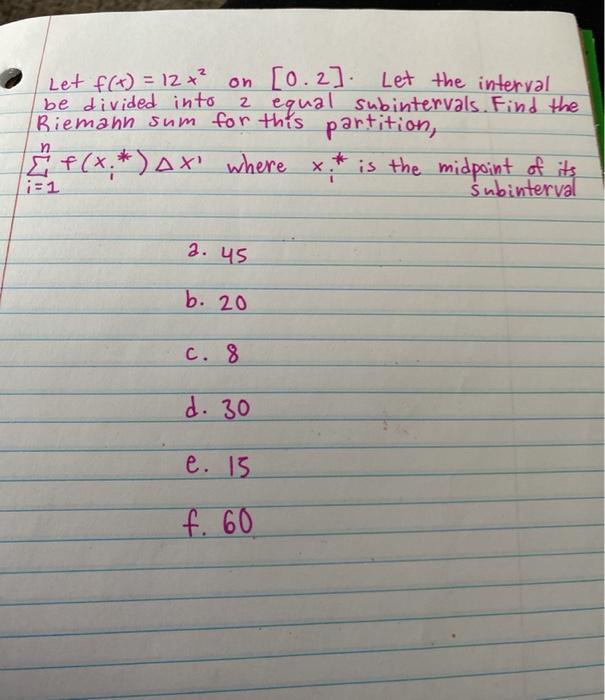 Let f(x) = 12x² on [0.2]. Let the interval
be divided into 2 equal subintervals. Find the
Riemann sum for this partition,
n
Σ f(x_i*) Δx' where x_i* is the midpoint of its
i=1 subinterval
a. 45
b. 20
c. 8
d. 30
e. 15
f. 60